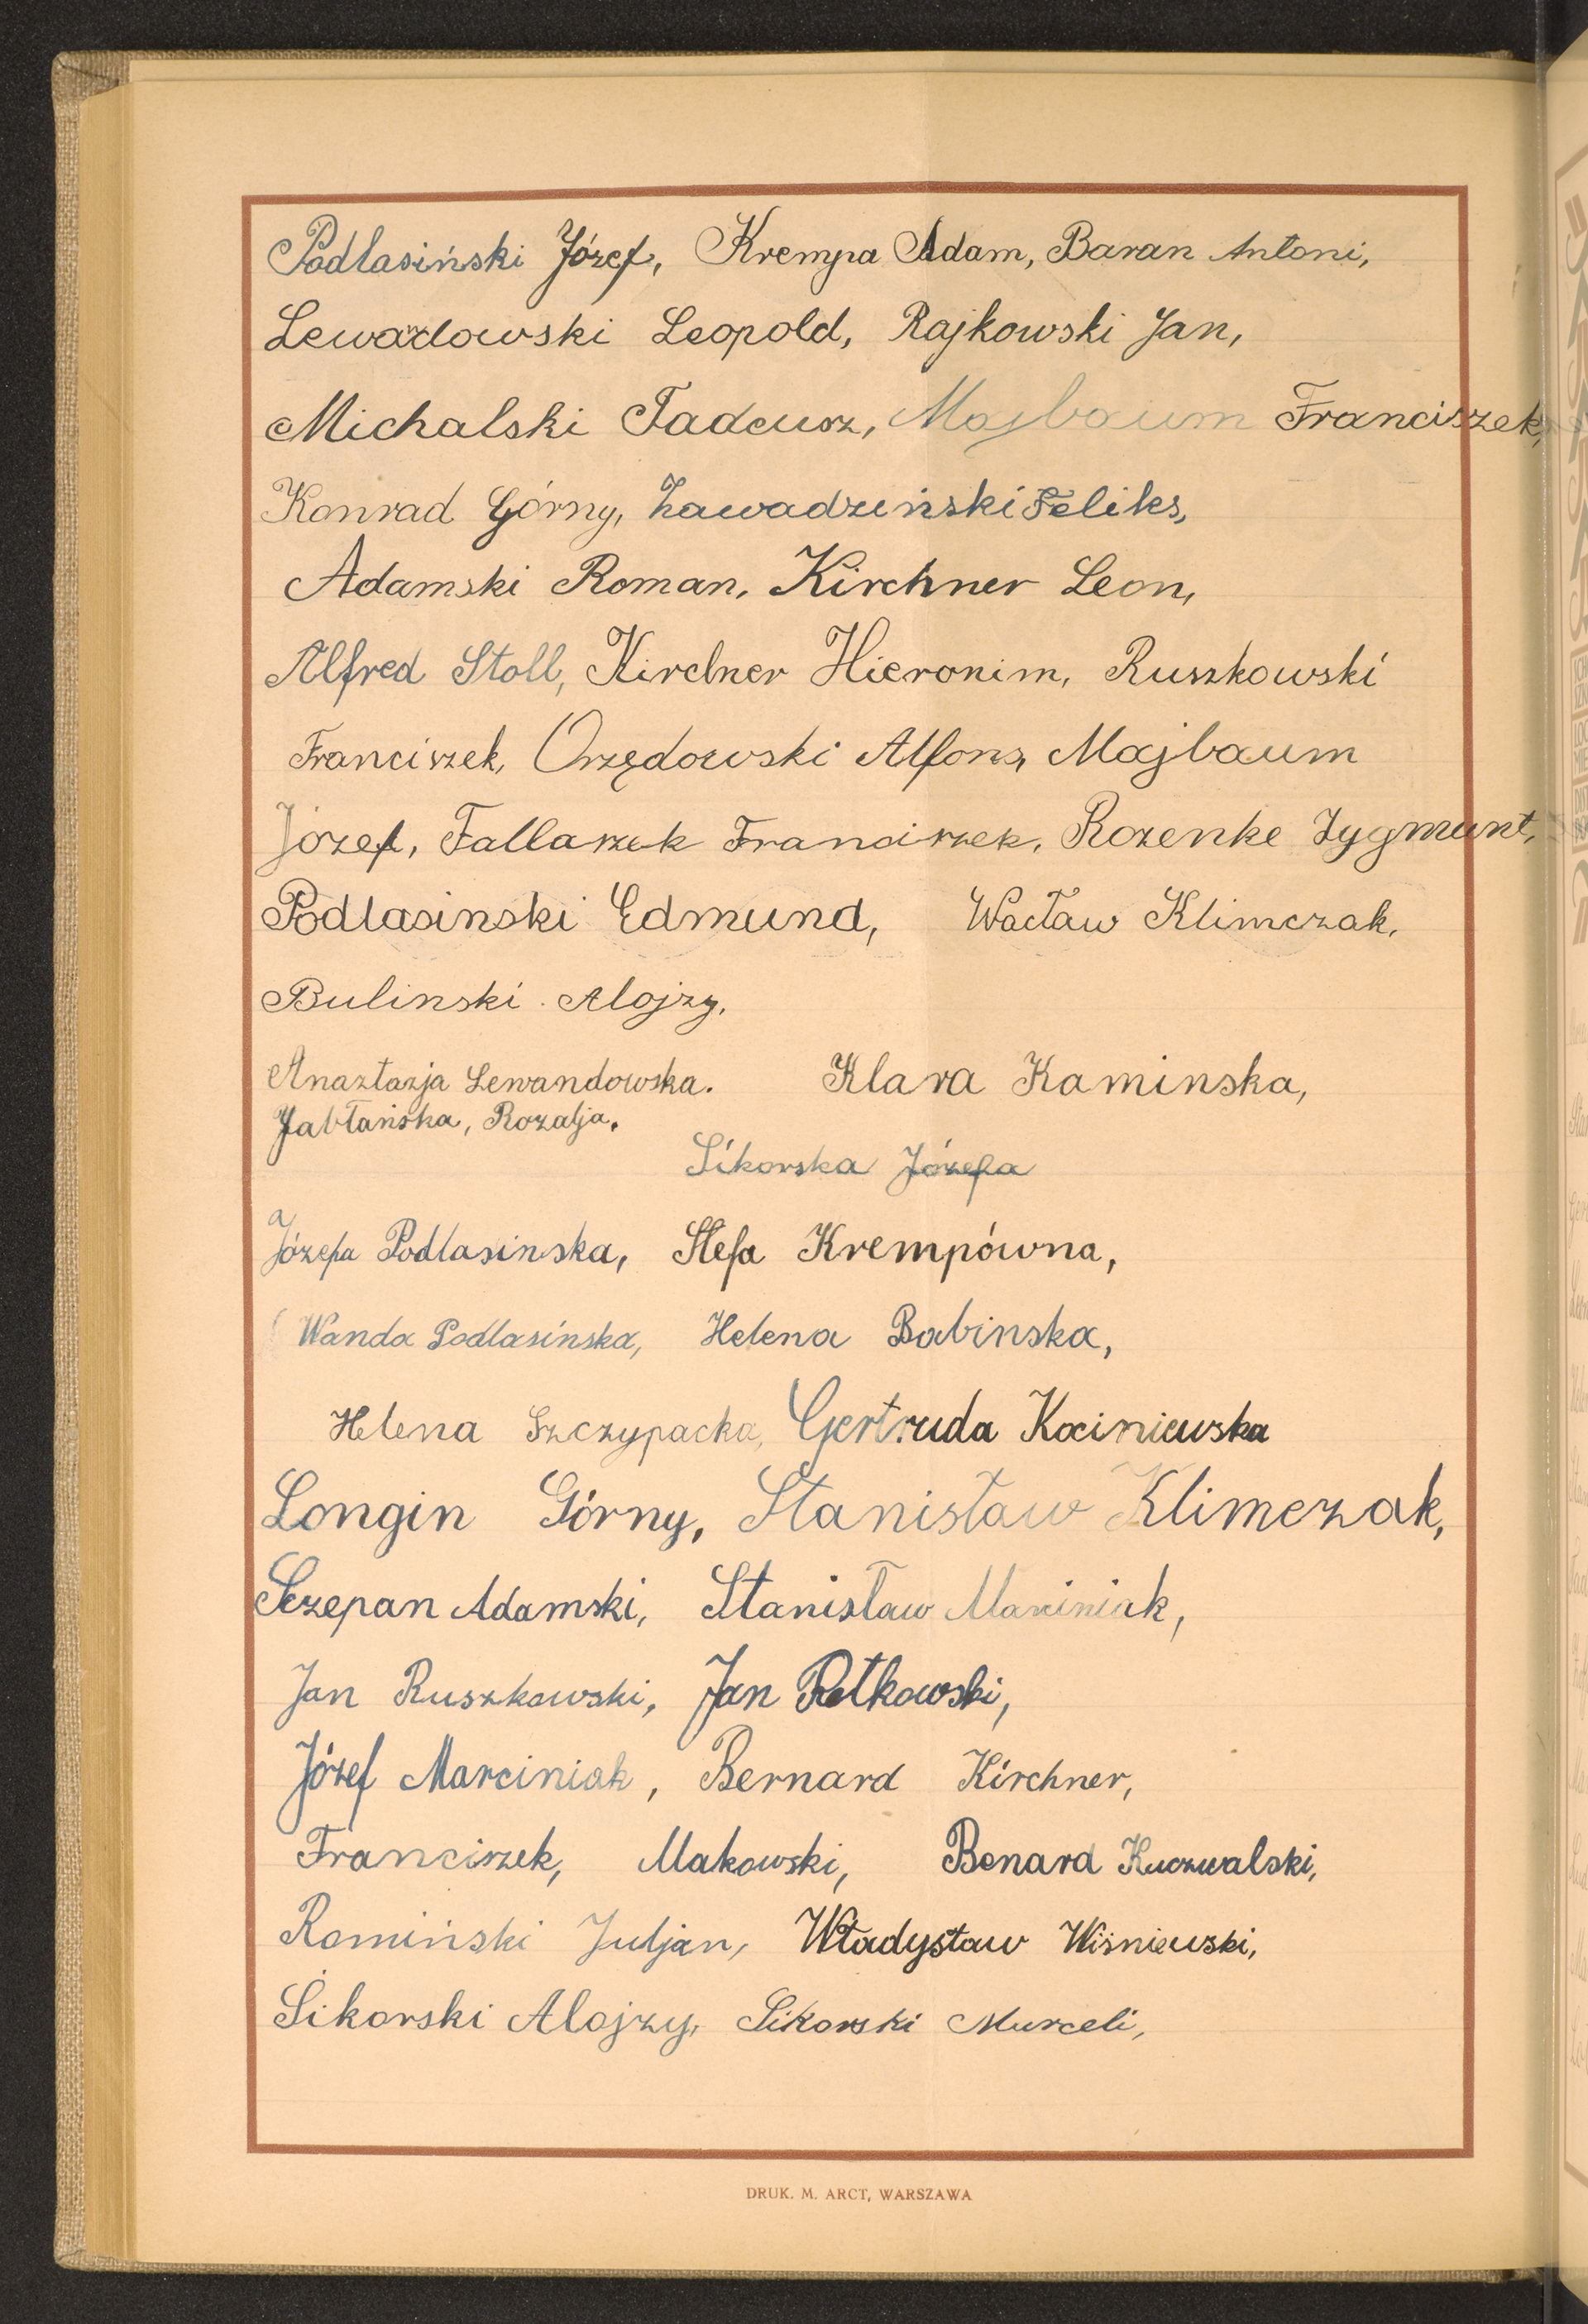 Podlasiński Józef, Krempa Adam, Baran Antoni,
Lewandowski Leopold, Rajkowski Jan,
Michalski Tadeusz, Majbaum Franciszek,
Konrad Górny, Zawadziński Feliks,
Adamski Roman, Kirchner Leon,
Alfred Stoll, Kirchner Hieronim, Ruszkowski
Franciszek, Orzędowski Alfons, Majbaum
Józef, Fallaszek Franciszek, Rozenke Zygmunt,
Podlasinski Edmund, Wacław Klimczak,
Bulinski Alojzy,
Anaztazja Lewandowska. Klara Kaminska,
Jabłańska, Rozalja.
Sikorska Józefa
Józefa Podlasinska, Stefa Krempówna,
Wanda Podlasińska, Helena Babinska,
Helena Szczypacka, Gertruda Kociniewska
Longin Górny, Stanisław Klimczak,
Sczepan Adamski, Stanisław Marciniak,
Jan Ruszkowski, Jan Retkowski,
Józef Marciniak, Bernard Kirchner,
Franciszek, Makowski, Benard Kuczwalski,
Romiński Juljan, Władysław Wiśniewski,
Sikorski Alojzy, Sikorski Murceli,
DRUK. M. ARCT, WARSZAWA